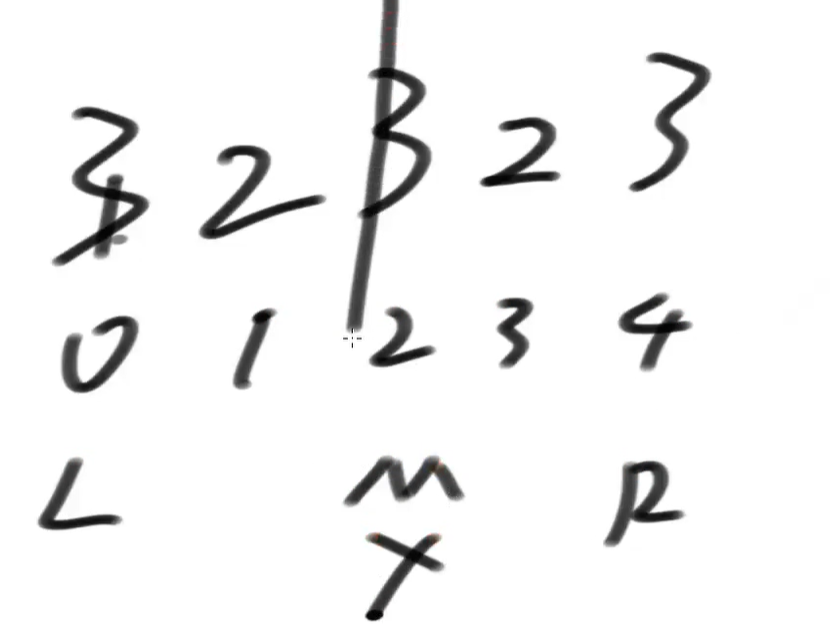 3 2 3 2 3
0 1 2 3 4
L M R
Y